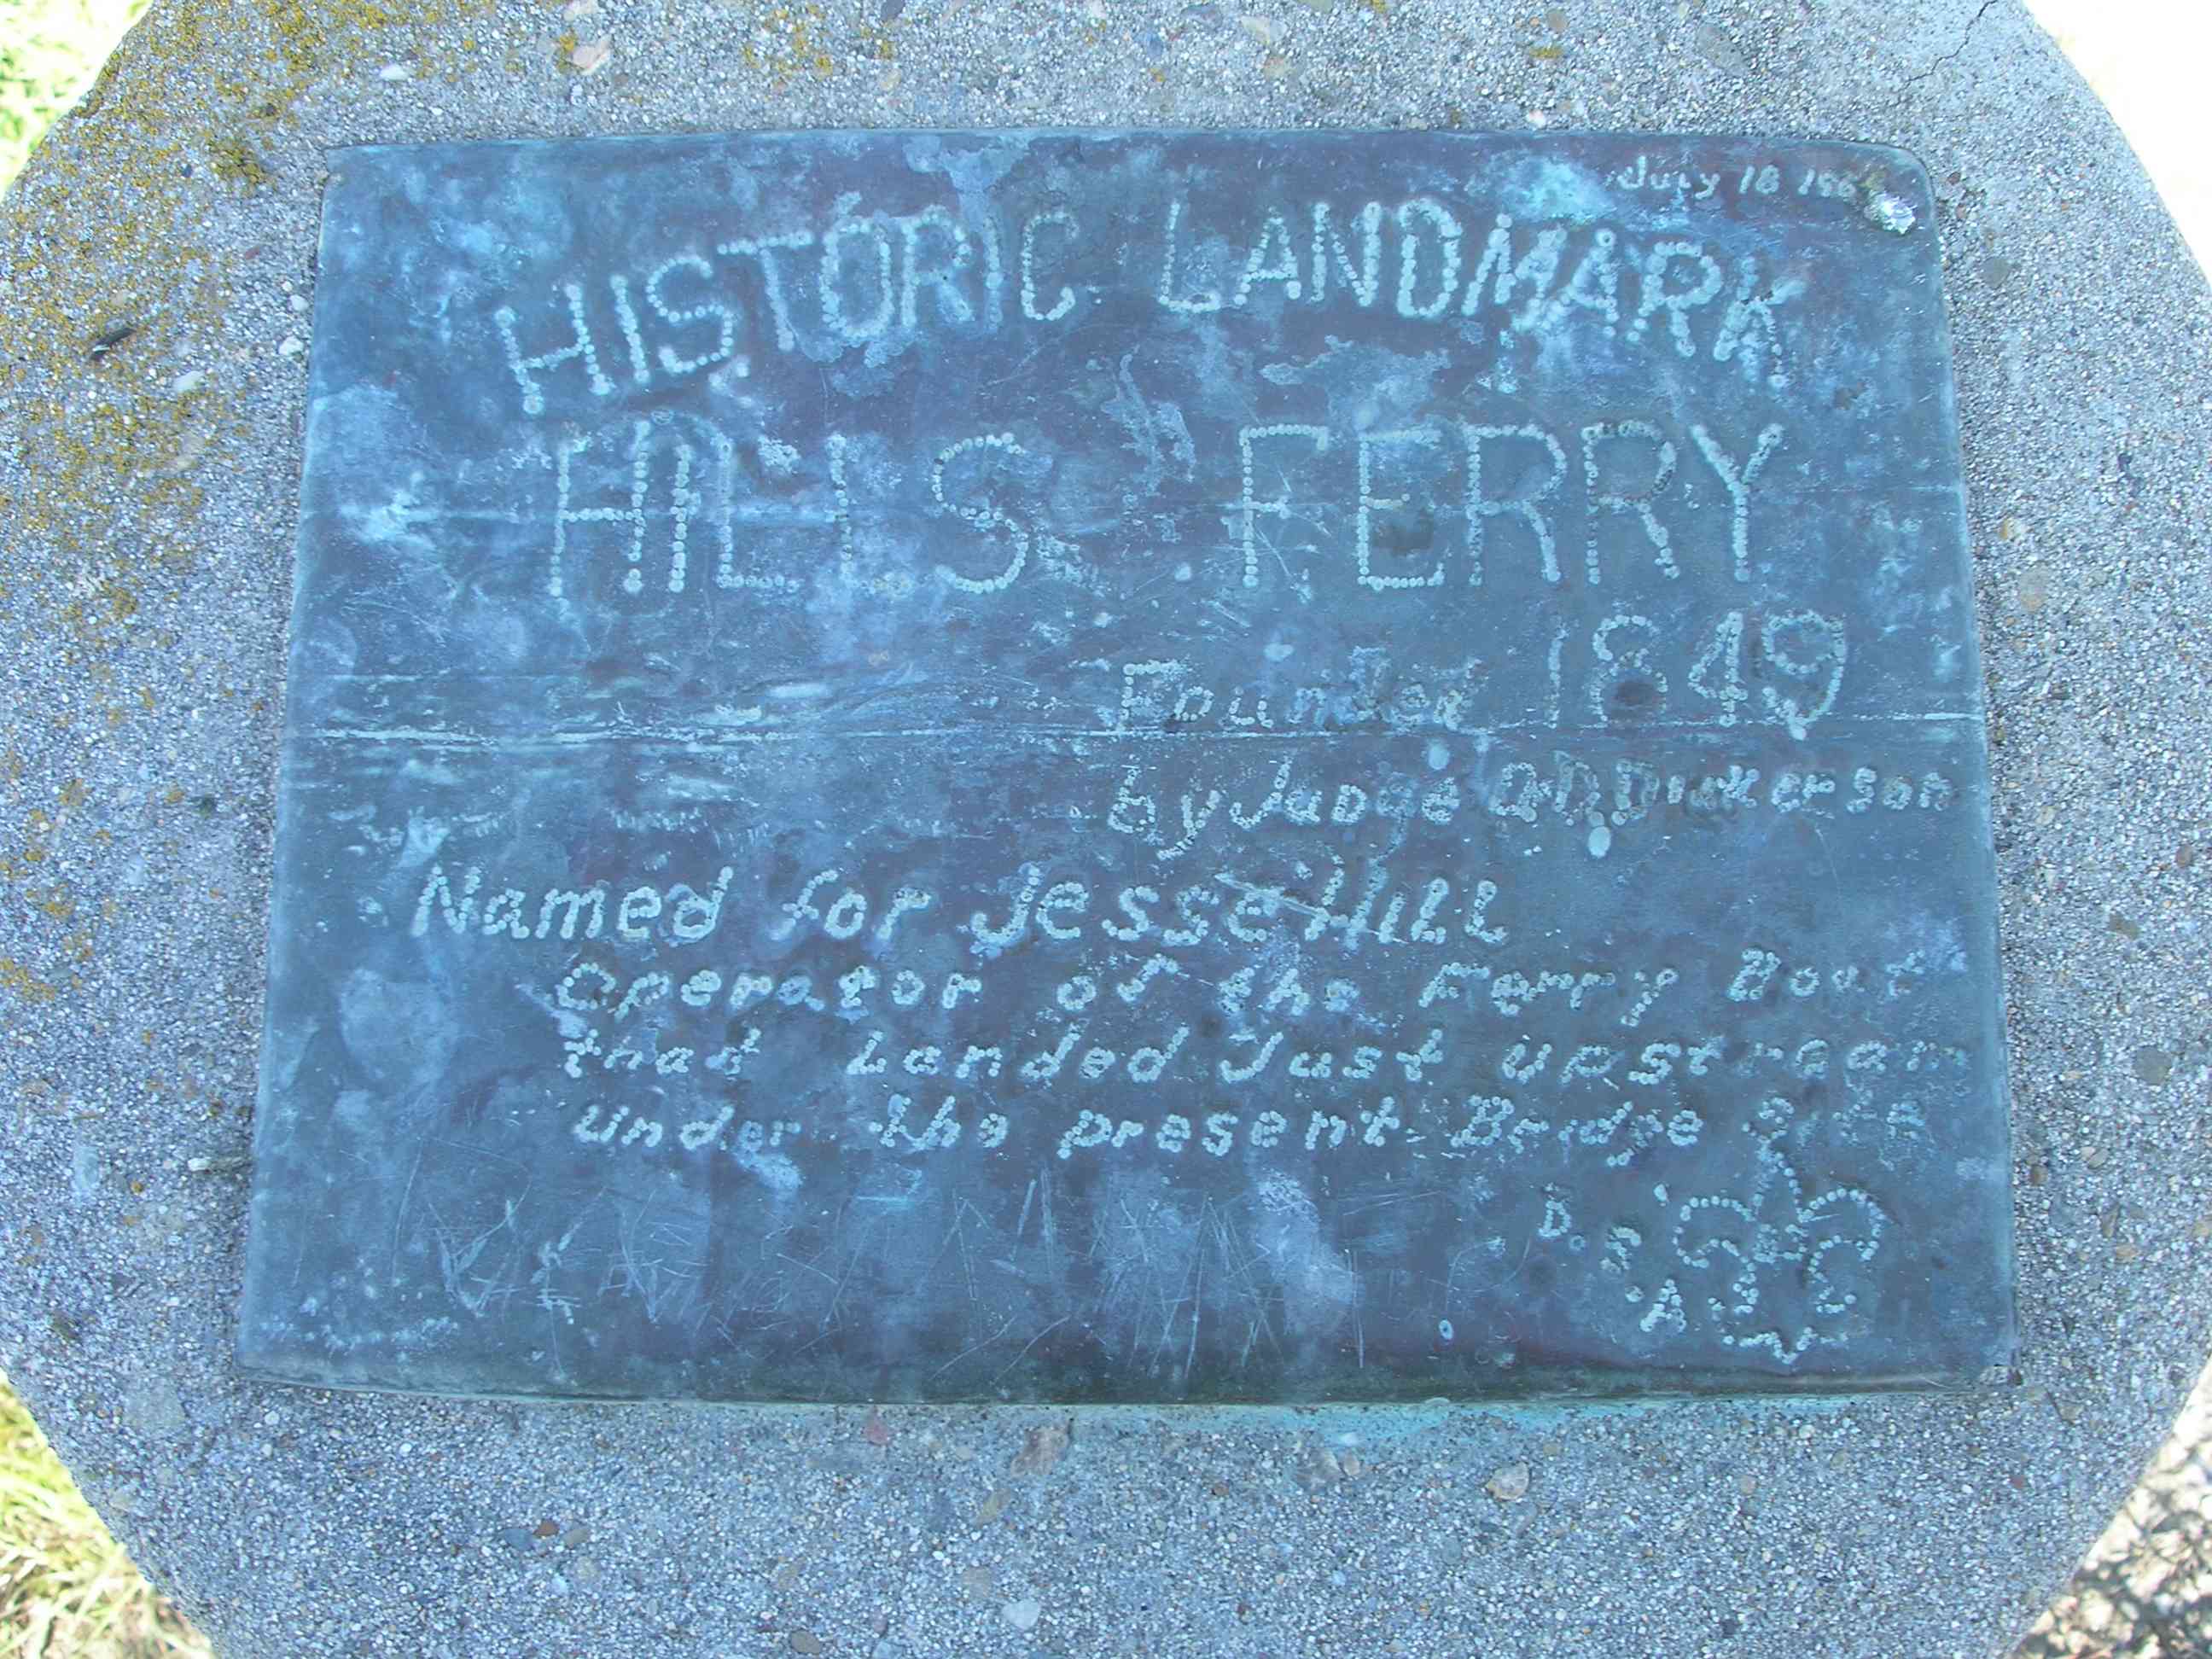 July 18
HISTORIC LANDMARK
HILLS FERRY
Founded 1849
by Judge O.D. Dickerson
Named for Jesse Hill
Operator of the Ferry Boat
that Landed Just upstream
under the present Bridge Site
B.S.A.